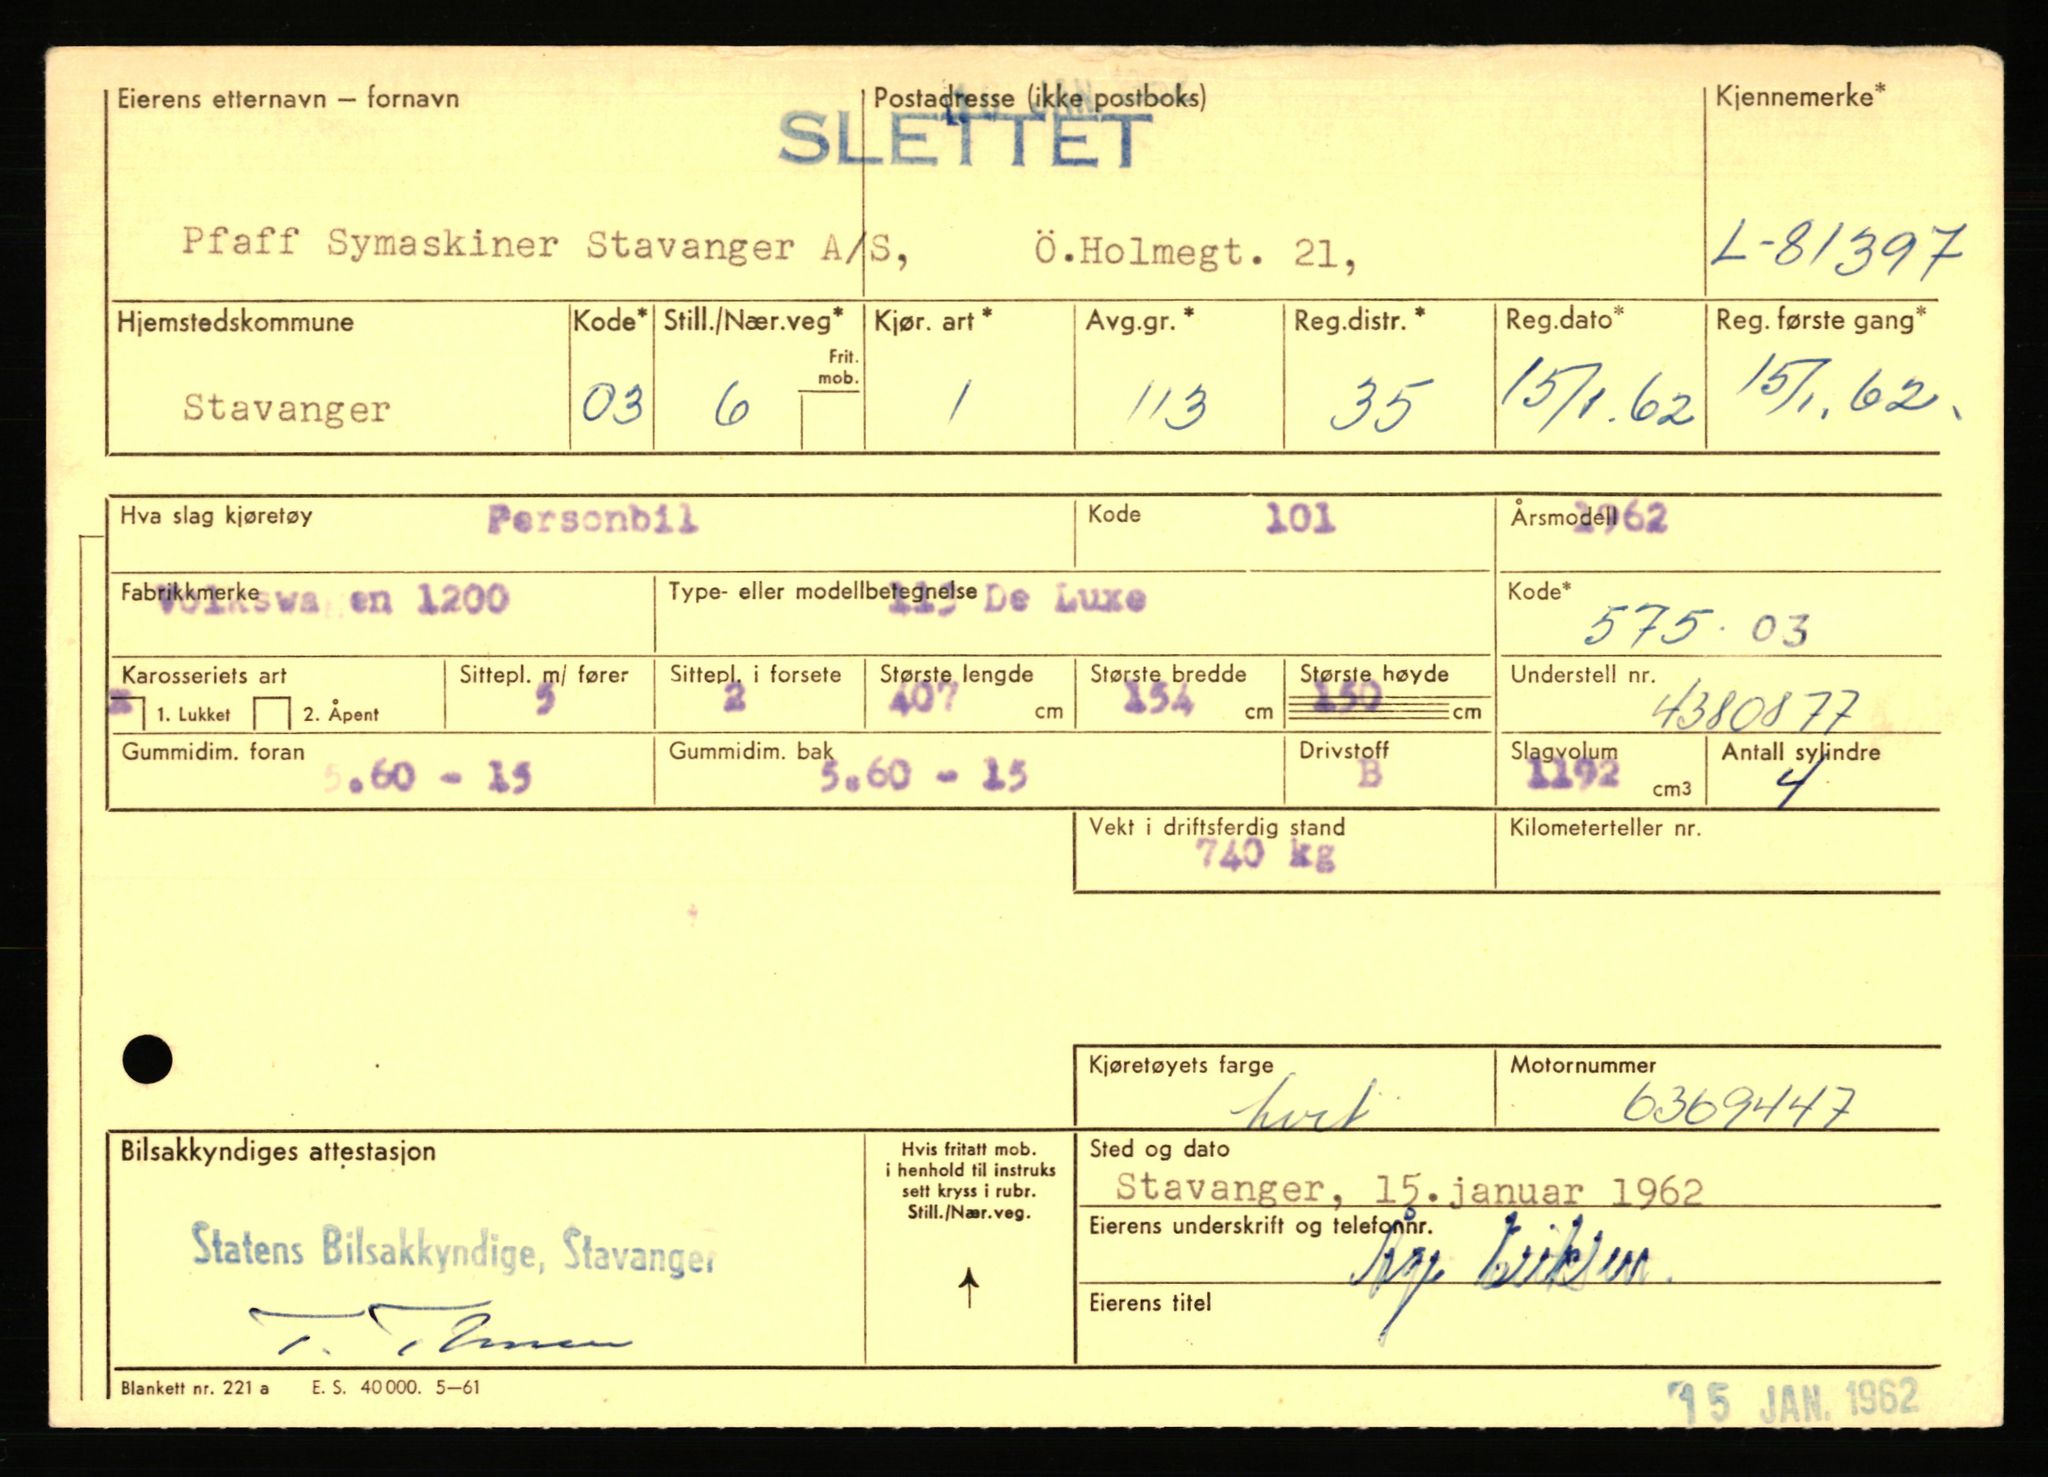 Eierens etternavn – fornavn
Postadresse (ikke postboks)
Kjennemerke*
JAN
SLETTET
Pfaff Symaskiner Stavanger A/S,
Ö.Holmegt. 21,
L-81397
Hjemstedskommune
Kode*
Still./Nær.veg*
Kjør. art*
Avg.gr.*
Reg.distr.*
Reg.dato*
Reg. første gang*
Frit.
mob.
Stavanger
03
6
1
113
35
15/1.62
15/1.62.
Hva slag kjøretøy
Personbil
Kode
101
Årsmodell
1962
Fabrikkmerke
Volkswagen 1200
Type- eller modellbetegnelse
113 De Luxe
Kode*
575. 03
Karosseriets art
x
1. Lukket
2. Åpent
Sittepl. m/ fører
5
Sittepl. i forsete
2
Største lengde
407
cm
Største bredde
154
cm
Største høyde
150
cm
Understell nr.
4380877
Gummidim. foran
5.60 - 15
Gummidim. bak
5.60 - 15
Drivstoff
B
Slagvolum
1192
cm3
Antall sylindre
4
Vekt i driftsferdig stand
740 kg
Kilometerteller nr.
Kjøretøyets farge
hvit
Motornummer
6369447
Bilsakkyndiges attestasjon
Statens Bilsakkyndige, Stavanger
Hvis fritatt mob.
i henhold til instruks
sett kryss i rubr.
Still./Nær.veg.
Sted og dato
Stavanger, 15.januar 1962
Eierens underskrift og telefonnr.
Eriksen.
Eierens titel
Blankett nr. 221 a E. S. 40 000. 5–61
15 JAN. 1962